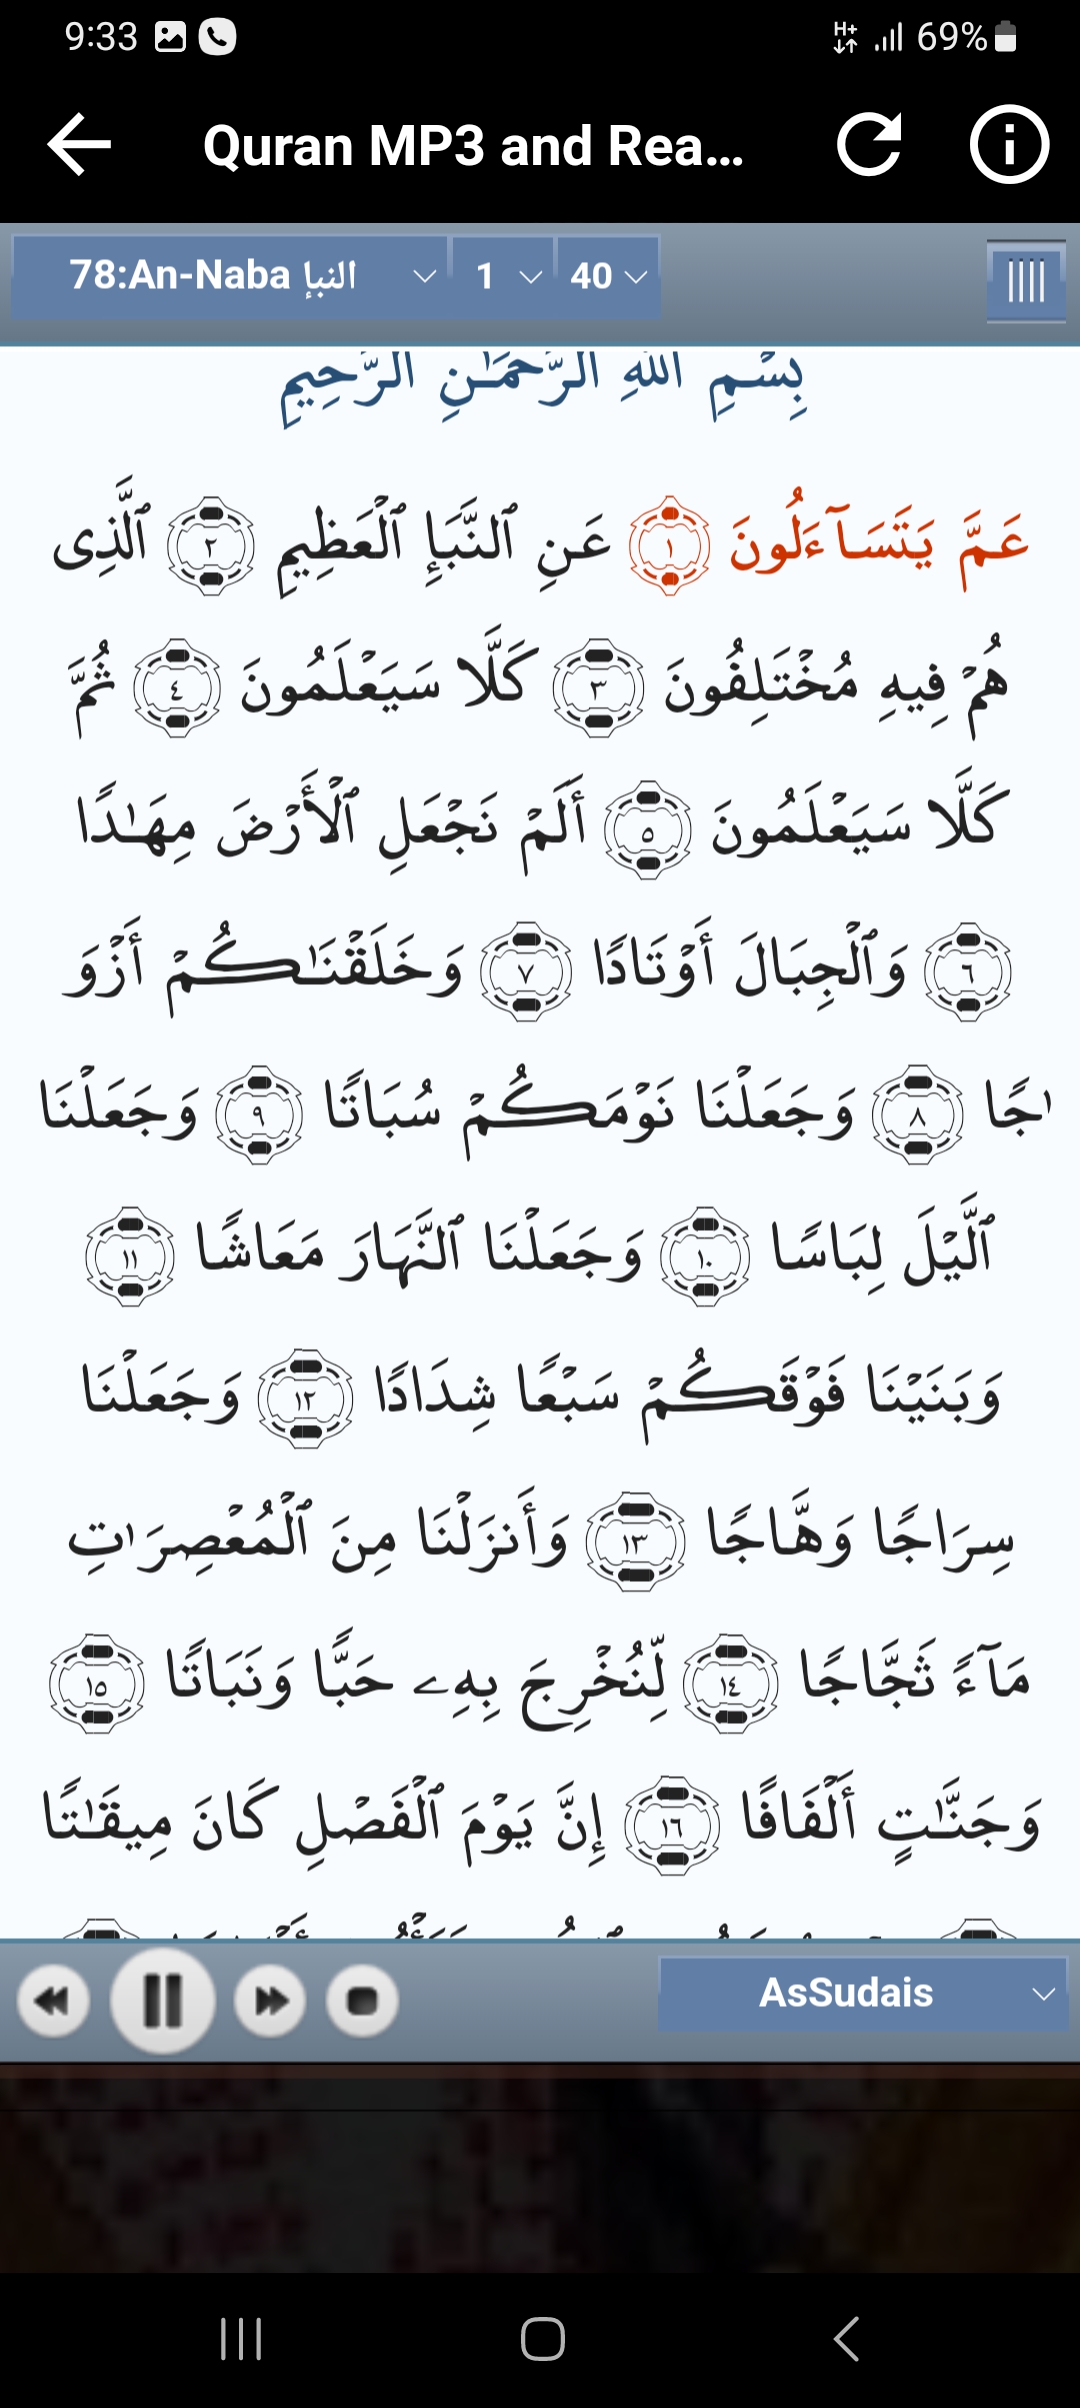 9:33 H+ 69%
Quran MP3 and Rea...
78:An-Naba النبإ 1 40
بِسْمِ اللَّهِ الرَّحْمَٰنِ الرَّحِيمِ
عَمَّ يَتَسَآءَلُونَ ١ عَنِ ٱلنَّبَإِ ٱلْعَظِيمِ ٢ ٱلَّذِى
هُمْ فِيهِ مُخْتَلِفُونَ ٣ كَلَّا سَيَعْلَمُونَ ٤ ثُمَّ
كَلَّا سَيَعْلَمُونَ ٥ أَلَمْ نَجْعَلِ ٱلْأَرْضَ مِهَٰدًا
٦ وَٱلْجِبَالَ أَوْتَادًا ٧ وَخَلَقْنَٰكُمْ أَزْوَ
ٰجًا ٨ وَجَعَلْنَا نَوْمَكُمْ سُبَاتًا ٩ وَجَعَلْنَا
ٱلَّيْلَ لِبَاسًا ١٠ وَجَعَلْنَا ٱلنَّهَارَ مَعَاشًا ١١
وَبَنَيْنَا فَوْقَكُمْ سَبْعًا شِدَادًا ١٢ وَجَعَلْنَا
سِرَاجًا وَهَّاجًا ١٣ وَأَنزَلْنَا مِنَ ٱلْمُعْصِرَٰتِ
مَآءً ثَجَّاجًا ١٤ لِّنُخْرِجَ بِهِۦ حَبًّا وَنَبَاتًا ١٥
وَجَنَّٰتٍ أَلْفَافًا ١٦ إِنَّ يَوْمَ ٱلْفَصْلِ كَانَ مِيقَٰتًا
AsSudais